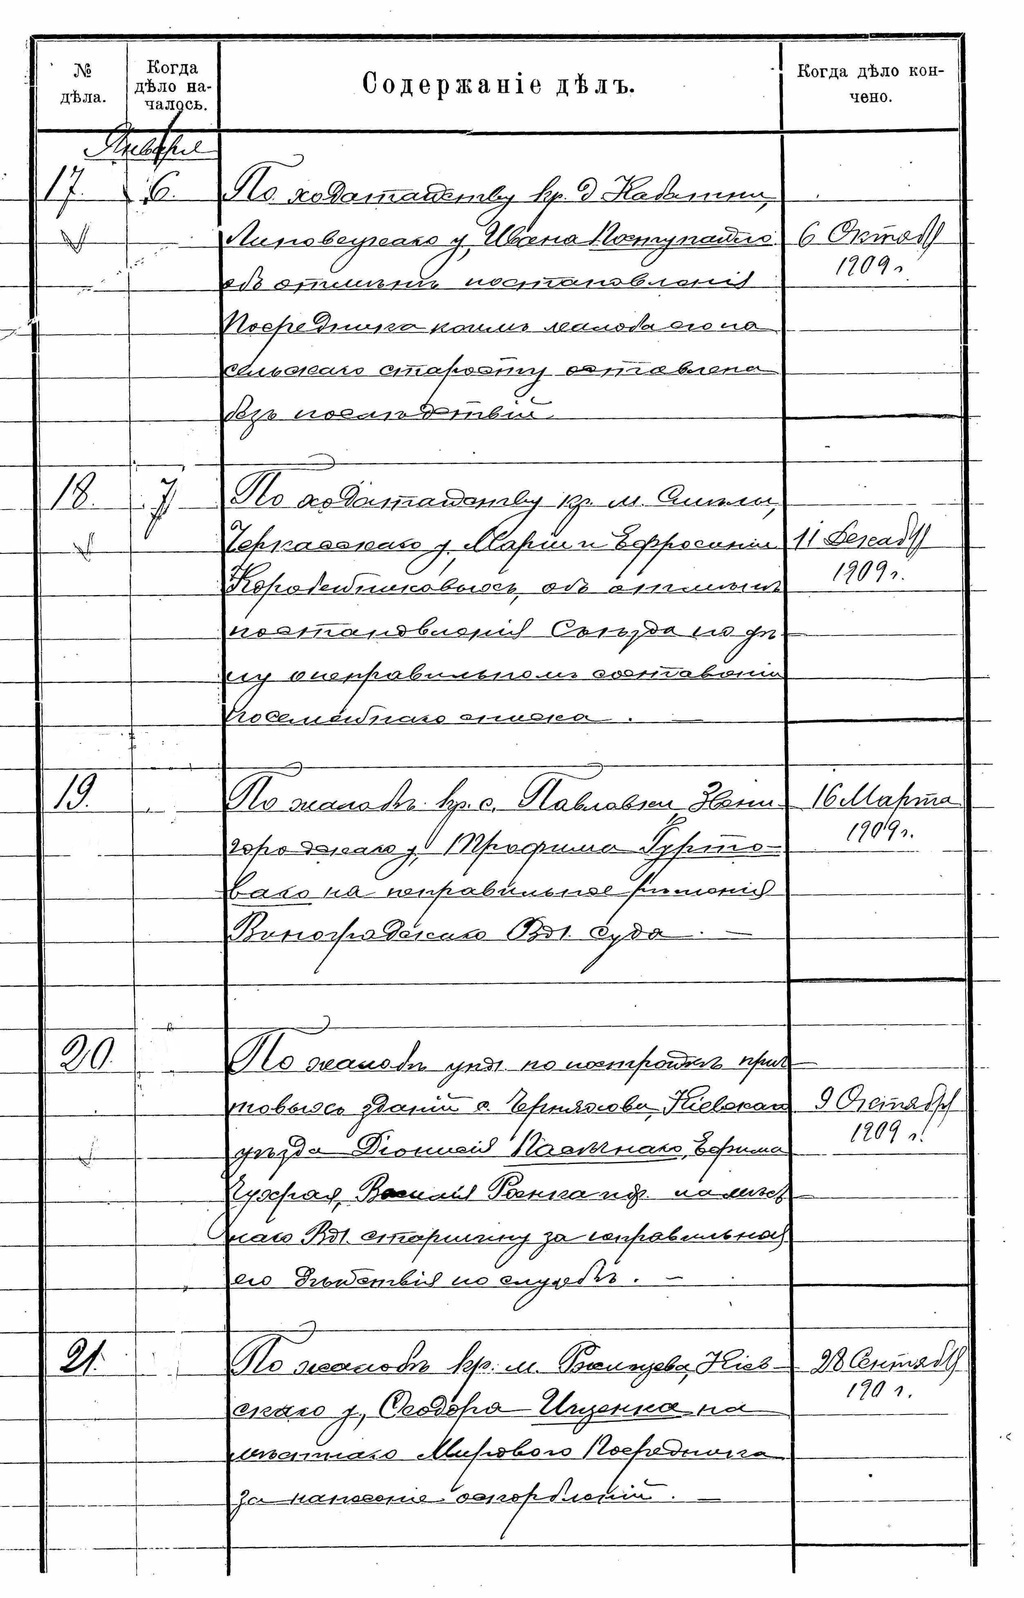 № дѣла.
Когда дѣло началось.
Содержаніе дѣлъ.
Когда дѣло кончено.
Января
17. 6. По ходатайству кр. д
Липовецкаго у, Ивана Поступайло 6 Октября
объ отмѣнѣ постановленія 1909 г.
Посредника коимъ жалоба его на
сельскаго старосту оставлена
безъ послѣдствій.
18. 7 По ходатайству кр. м. Смѣлы,
Черкасскаго у, Маріи и Ефросиніи 11 Декабря
Коробейниковыхъ, объ отмѣнѣ 1909 г.
постановленія Съѣзда по дѣ-
лу о неправильномъ составленіи
посемейнаго списка. —
19. По жалобѣ кр. с. Павловки, Звени- 16 Марта
городскаго у, Трофима Гурто- 1909 г.
ваго на неправильное рѣшеніе
Виноградскаго Вол. суда. —
20. По жалобѣ упол. по постройкѣ прич-
товыхъ зданій с. Черняхова, Кіевскаго 9 Октября
уѣзда Діонисія Ефима 1909 г.
Василія на мѣст-
наго Вол. старшину за неправильныя
его дѣйствія по службѣ. —
21. По жалобѣ кр. м. Кіев- 28 Сентября
скаго у, Ѳеодора Ищенка на 190 г.
мѣстнаго Мирового Посредника
за нанесеніе оскорбленій. —